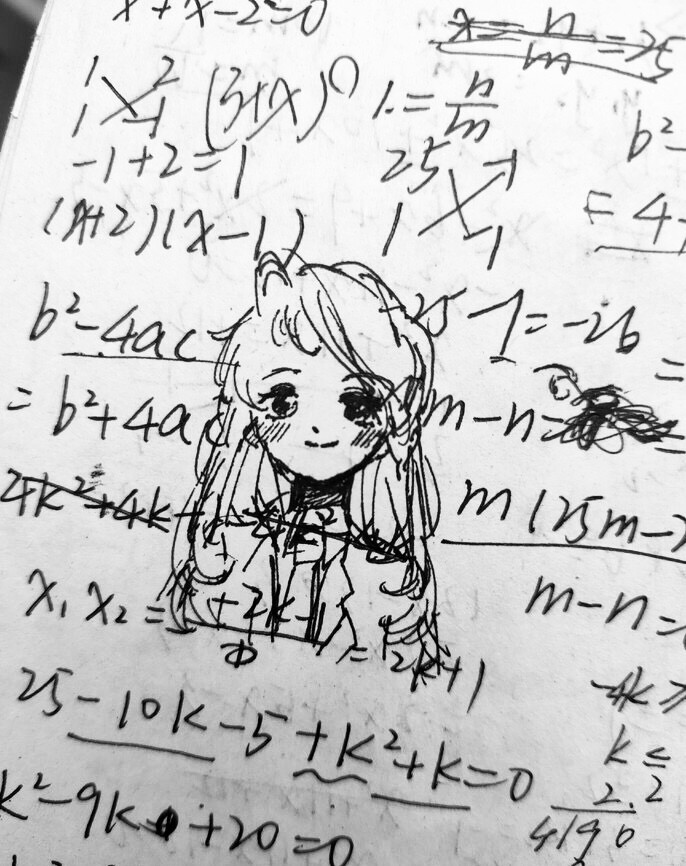 x + x - 2 = 0
x = n/m = 25
1 2
1 -1
(3+x)
1. = n/m
b²-
-1+2=1
25 -1
1 -1
= 4
(x+2)(x-1)
b²-4ac
-25-1=-26
=
= b²+4ac
m-n=
4k²+4k
m(25m-
x₁x₂=
+2k-1
m-n=
=2k+1
-4k≥
25-10k-5+k²+k=0
k≤
2.2
k²-9k+20=0
4190